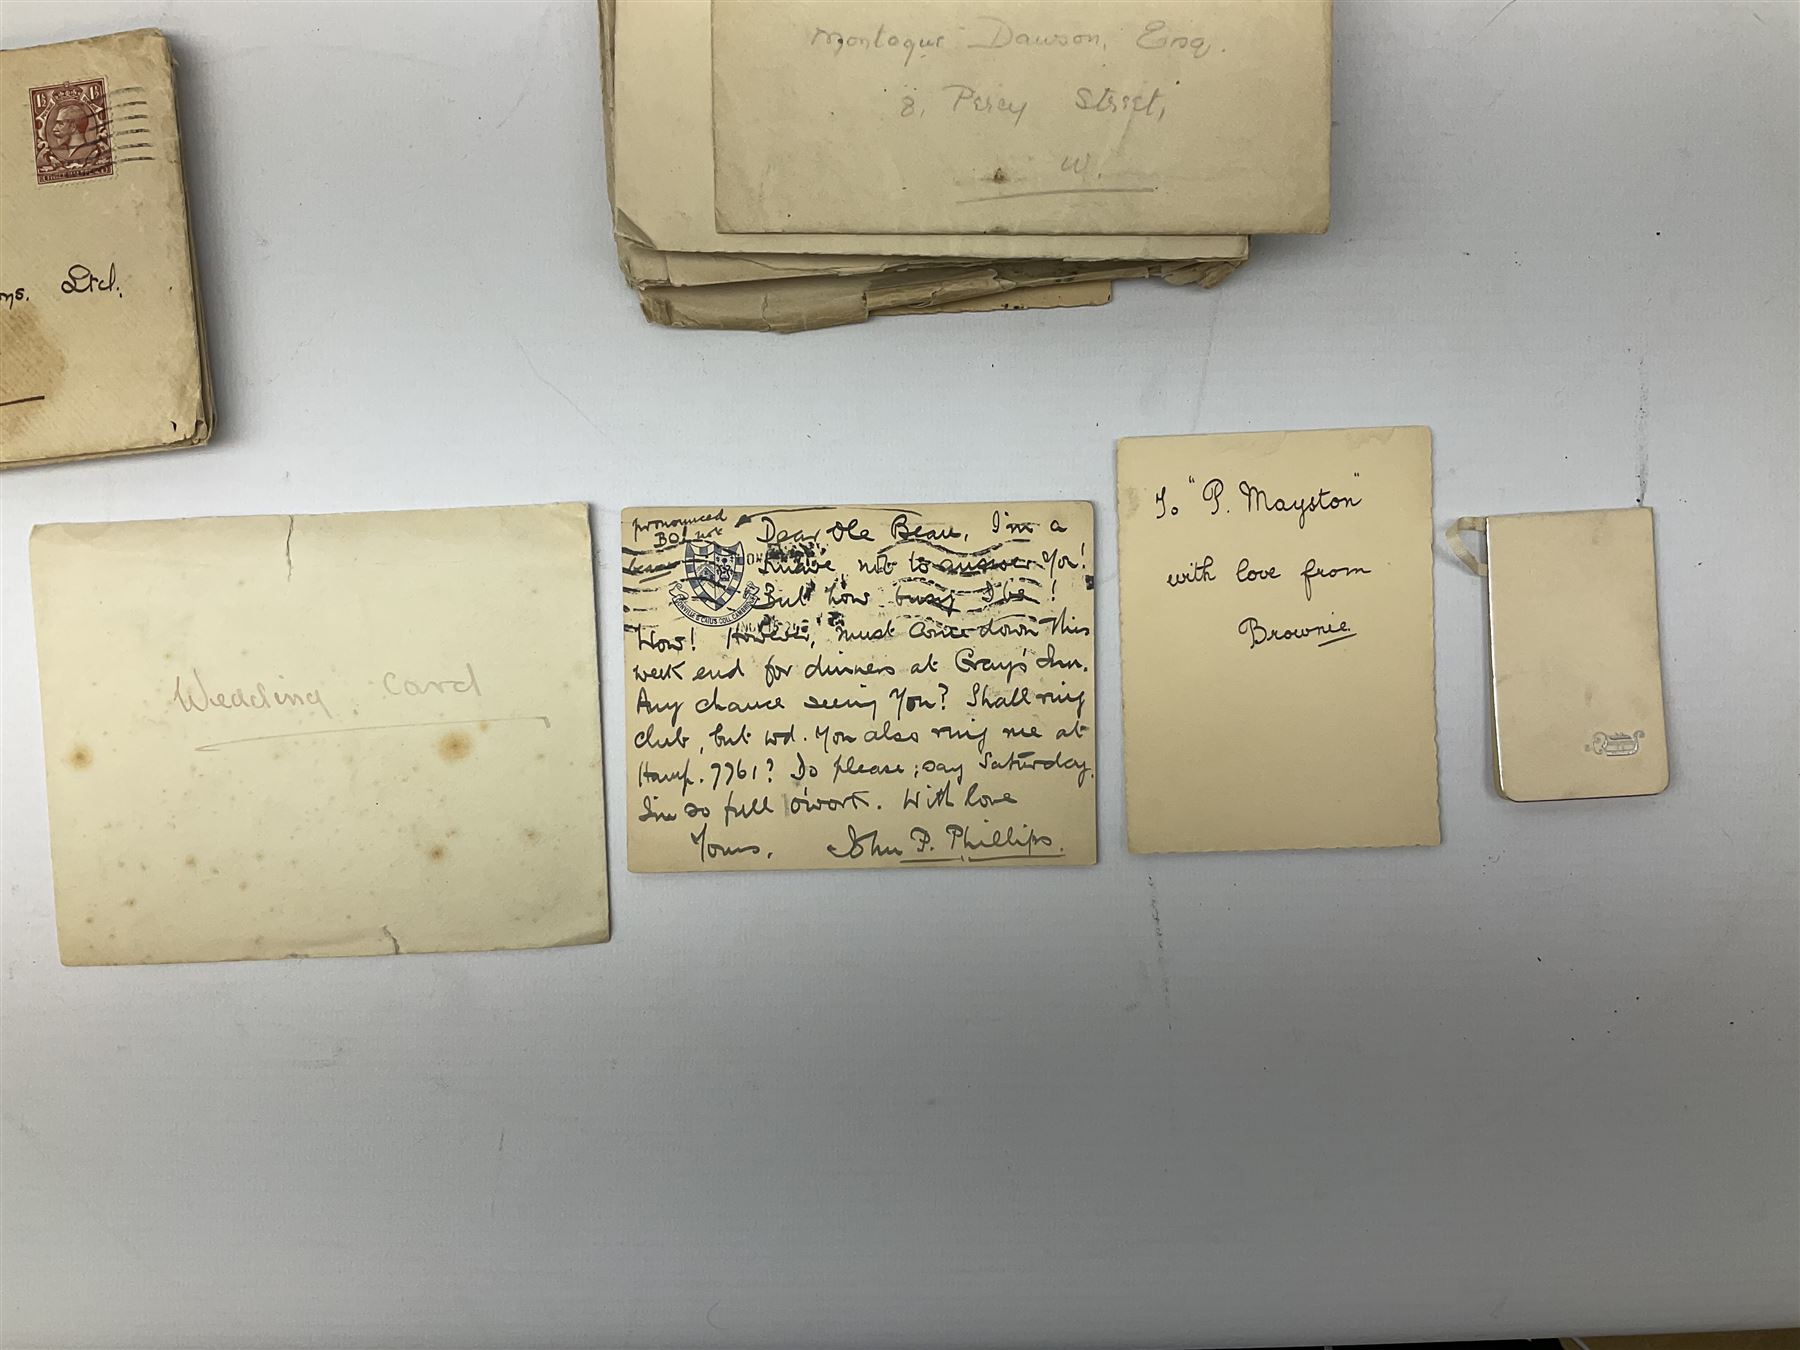 Montague Dawson, Esq.
8, Percy Street,
W.
1½ 1½
Ltd.
Wedding card
pronounced
BO not
beau
Dear Ole Beau, I'm a
knave not to answer You!
But how busy I be!
Wow! However, must come down this
week end for dinners at Gray's Inn.
Any chance seeing You? Shall ring
club, but wd. You also ring me at
Hamp. 7761? Do please; say Saturday.
I'm so full o'work. With love
Yours, John P. Phillips.
To "P. Mayston"
with love from
Brownie